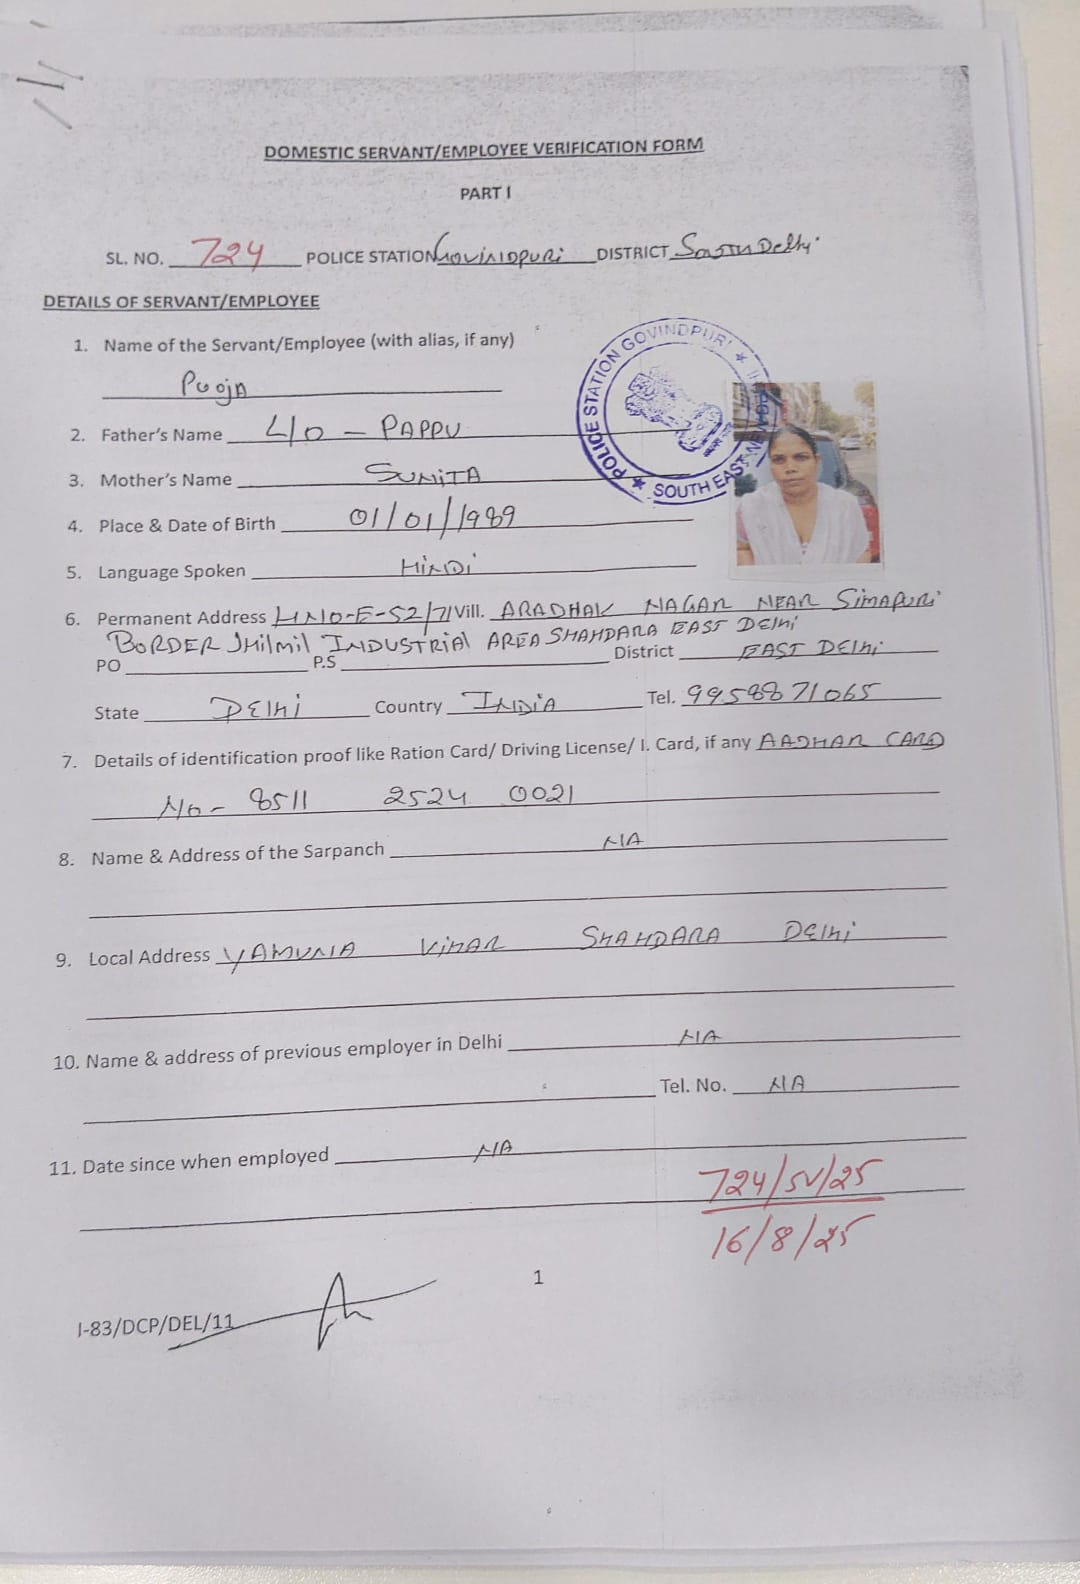 DOMESTIC SERVANT/EMPLOYEE VERIFICATION FORM
PART I
SL. NO. 724 POLICE STATION GOVINDPURI DISTRICT South Delhi
DETAILS OF SERVANT/EMPLOYEE
1. Name of the Servant/Employee (with alias, if any)
Pooja
POLICE STATION GOVINDPURI ★
★ SOUTH EAST
2. Father's Name PAPPU
3. Mother's Name SUNITA
4. Place & Date of Birth 01/01/1989
5. Language Spoken HiNDi
6. Permanent Address HNO-E-52/71 Vill. ARADHAK NAGAR NEAR SiMAPURi
BORDER JHilMil INDUSTRIAl AREA SHAHDARA EAST DElHi
PO P.S District EAST DElHi
State DElHi Country INDiA Tel. 9958871065
7. Details of identification proof like Ration Card/ Driving License/ I. Card, if any AADHAR CARD
No - 8511 2524 0021
8. Name & Address of the Sarpanch NA
9. Local Address YAMUNA ViHAR SHAHDARA DElHi
10. Name & address of previous employer in Delhi NA
Tel. No. NA
11. Date since when employed NA
724/SV/25
16/8/25
1
I-83/DCP/DEL/11